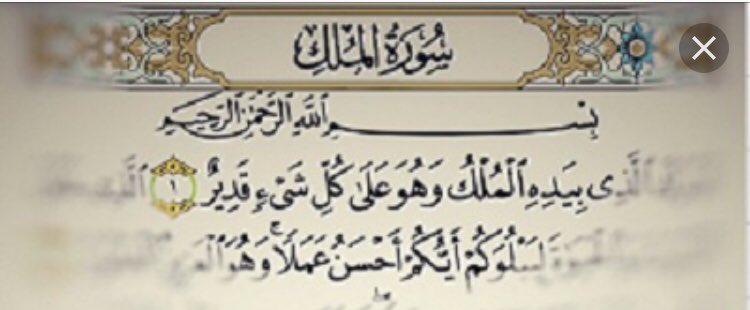 سُورَةُ المُلْكِ
بِسْمِ اللَّهِ الرَّحْمَٰنِ الرَّحِيمِ
الَّذِى بِيَدِهِ الْمُلْكُ وَهُوَ عَلَىٰ كُلِّ شَىْءٍ قَدِيرٌ ١
لِيَبْلُوَكُمْ أَيُّكُمْ أَحْسَنُ عَمَلًا ۚ وَهُوَ